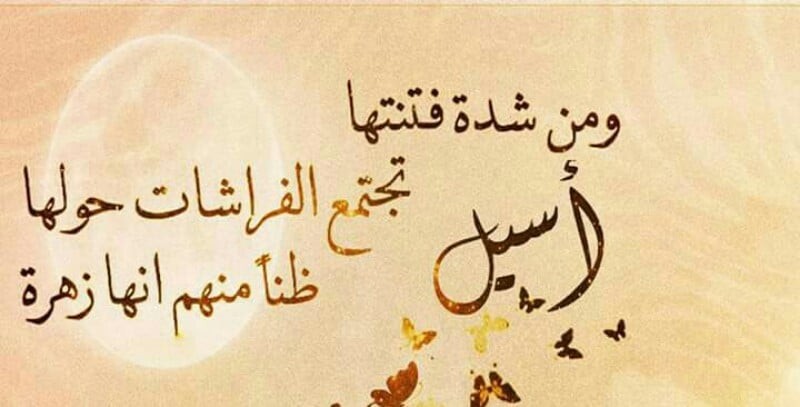 ومن شدة فتنتها
أسيل
تجتمع الفراشات حولها
ظناً منهم انها زهرة